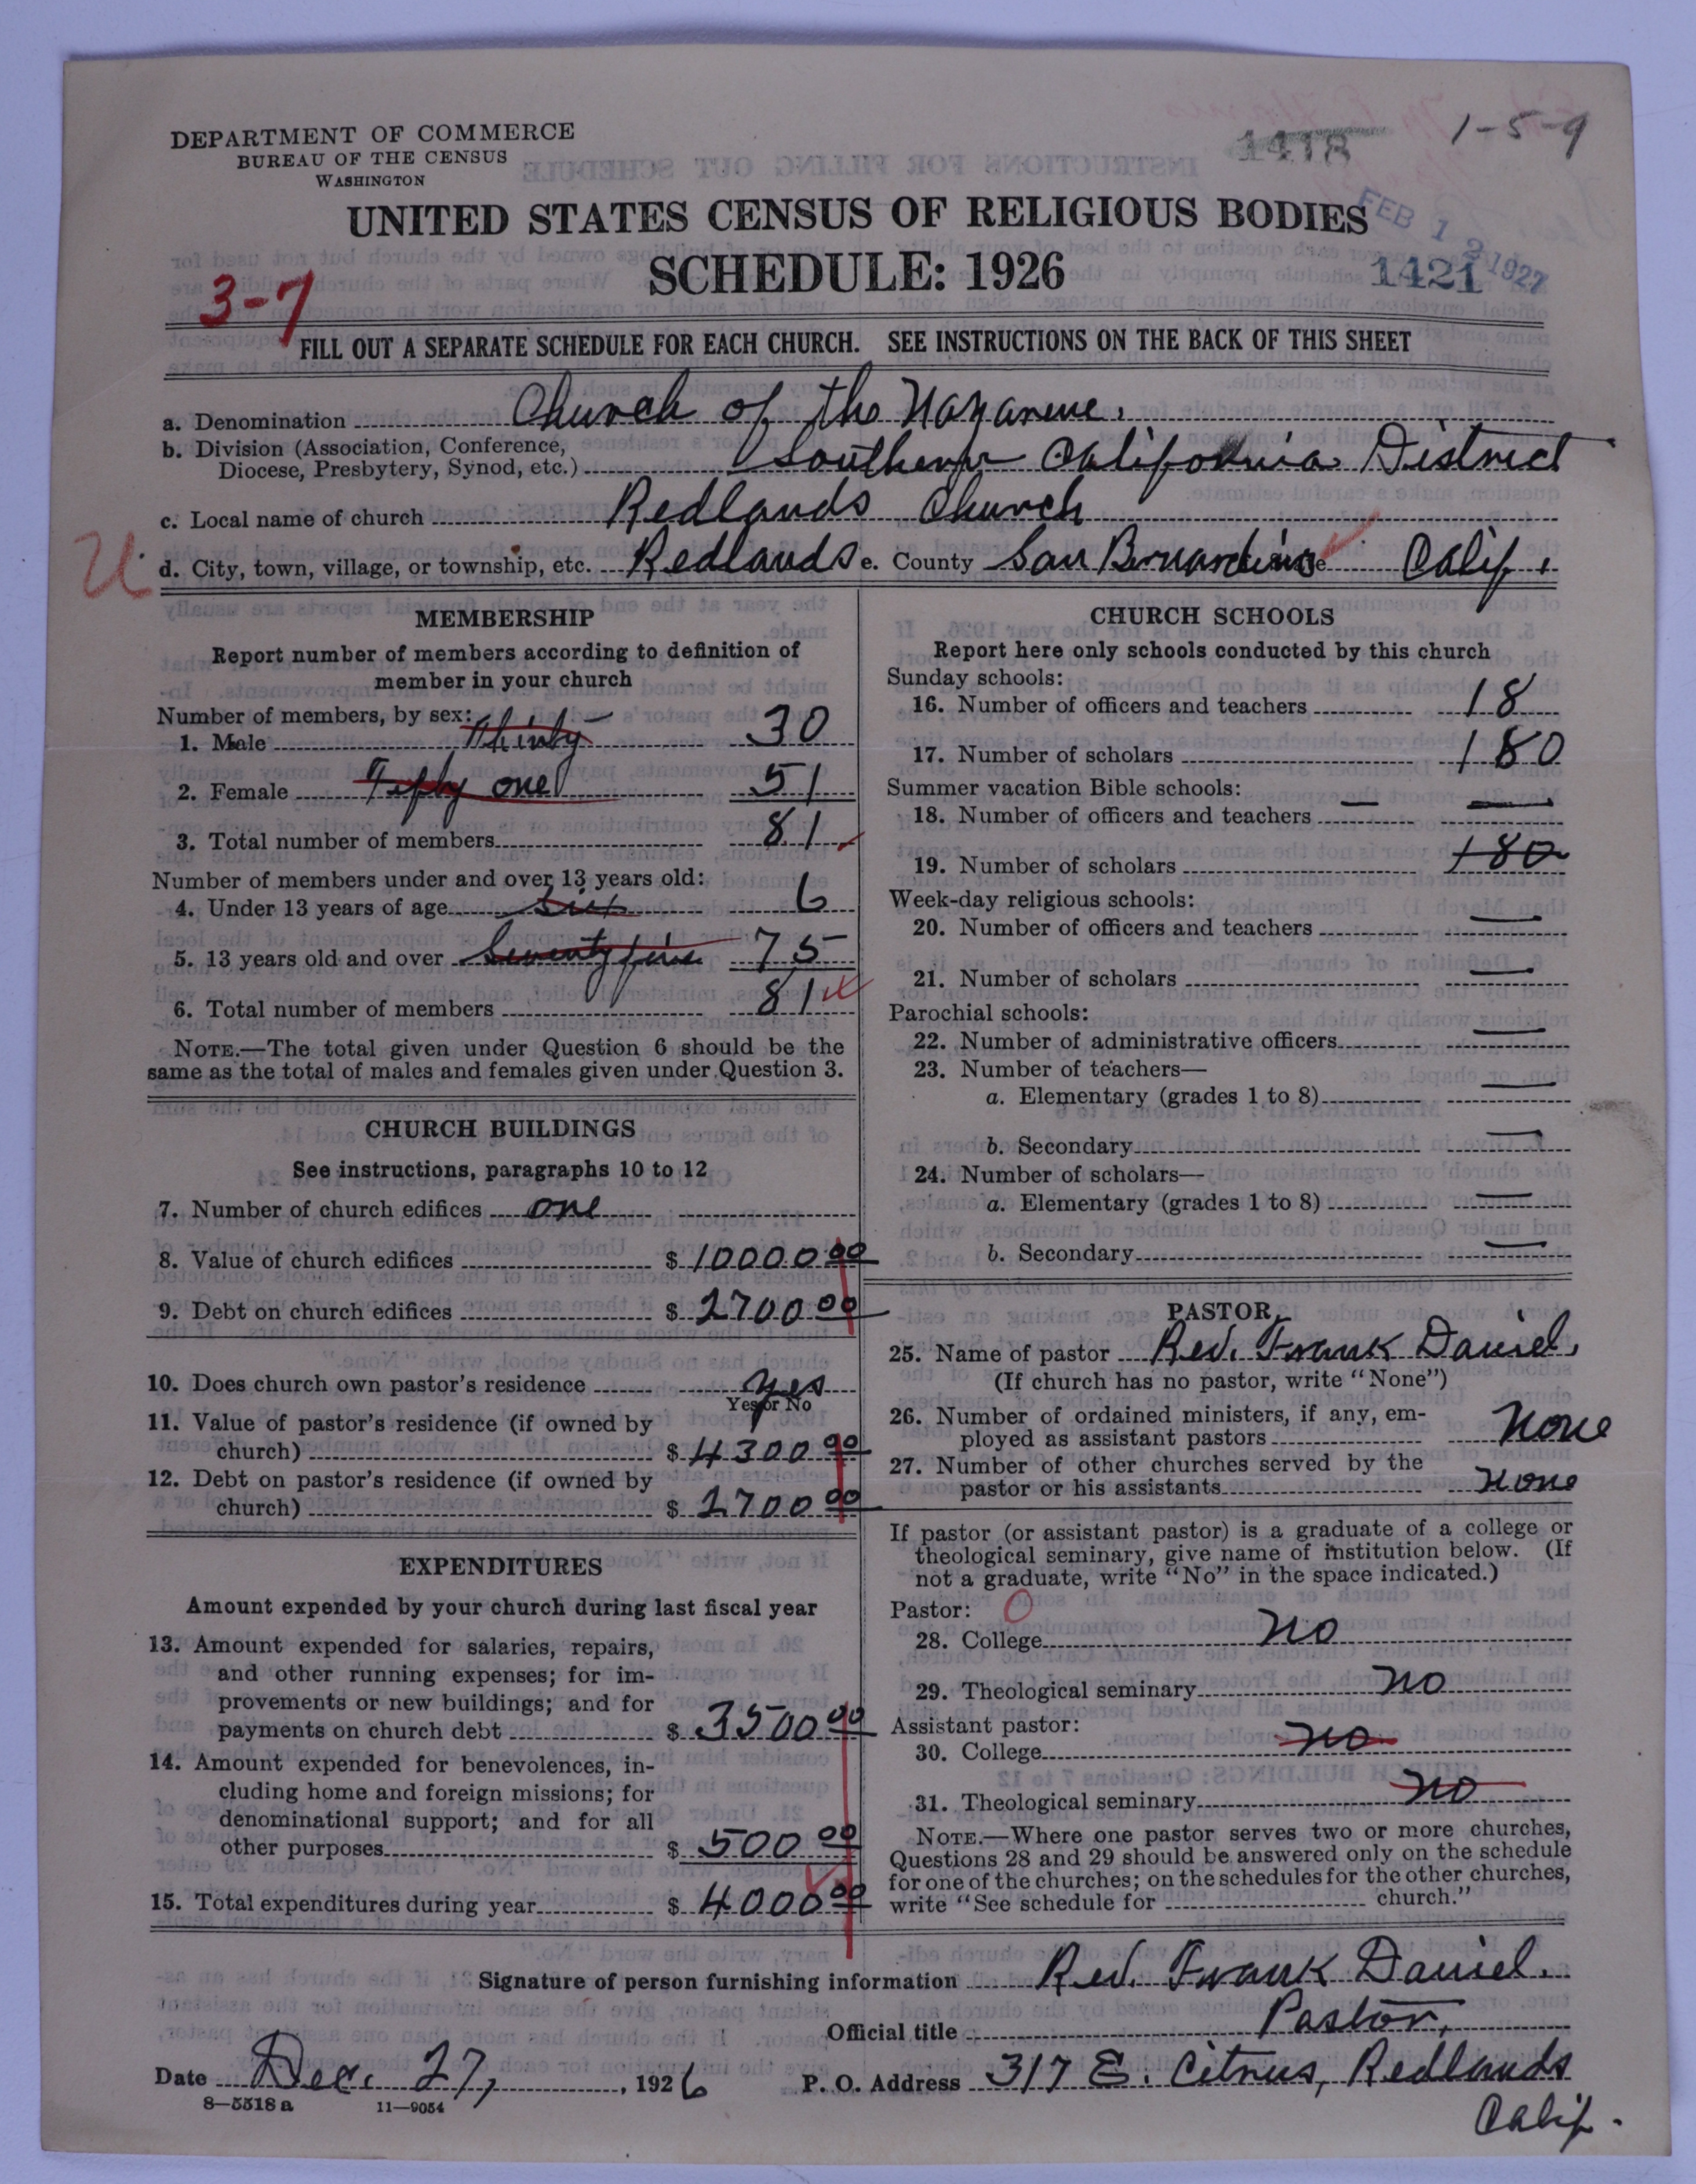 DEPARTMENT OF COMMERCE
BUREAU OF THE CENSUS
WASHINGTON
1418
1-5-9
UNITED STATES CENSUS OF RELIGIOUS BODIES
SCHEDULE: 1926
FEB 12 1927
1421
3-7
FILL OUT A SEPARATE SCHEDULE FOR EACH CHURCH. SEE INSTRUCTIONS ON THE BACK OF THIS SHEET
a. Denomination Church of the Nazarene.
b. Division (Association, Conference,
Diocese, Presbytery, Synod, etc.) Southern California District
c. Local name of church Redlands Church
U
d. City, town, village, or township, etc. Redlands e. County San Bernardino Calif.
MEMBERSHIP
Report number of members according to definition of
member in your church
Number of members, by sex:
1. Male Thirty 30
2. Female Fifty one 51
3. Total number of members 81
Number of members under and over 13 years old:
4. Under 13 years of age Six 6
5. 13 years old and over Seventy five 75
6. Total number of members 81
NOTE.—The total given under Question 6 should be the
same as the total of males and females given under Question 3.
CHURCH BUILDINGS
See instructions, paragraphs 10 to 12
7. Number of church edifices one
8. Value of church edifices $ 10000.00
9. Debt on church edifices $ 2700 00
10. Does church own pastor's residence yes
Yes or No
11. Value of pastor's residence (if owned by
church) $ 4300 00
12. Debt on pastor's residence (if owned by
church) $ 2700 00
EXPENDITURES
Amount expended by your church during last fiscal year
13. Amount expended for salaries, repairs,
and other running expenses; for im-
provements or new buildings; and for
payments on church debt $ 3500 00
14. Amount expended for benevolences, in-
cluding home and foreign missions; for
denominational support; and for all
other purposes $ 500 00
15. Total expenditures during year $ 4000 00
CHURCH SCHOOLS
Report here only schools conducted by this church
Sunday schools:
16. Number of officers and teachers 18
17. Number of scholars 180
Summer vacation Bible schools:
18. Number of officers and teachers —
19. Number of scholars 180
Week-day religious schools:
20. Number of officers and teachers —
21. Number of scholars —
Parochial schools:
22. Number of administrative officers —
23. Number of teachers—
a. Elementary (grades 1 to 8) —
b. Secondary —
24. Number of scholars—
a. Elementary (grades 1 to 8) —
b. Secondary —
PASTOR
25. Name of pastor Rev. Frank Daniel.
(If church has no pastor, write "None")
26. Number of ordained ministers, if any, em-
ployed as assistant pastors None
27. Number of other churches served by the
pastor or his assistants None
If pastor (or assistant pastor) is a graduate of a college or
theological seminary, give name of institution below. (If
not a graduate, write "No" in the space indicated.)
Pastor: 0
28. College No
29. Theological seminary No
Assistant pastor:
30. College No
31. Theological seminary No
NOTE.—Where one pastor serves two or more churches,
Questions 28 and 29 should be answered only on the schedule
for one of the churches; on the schedules for the other churches,
write "See schedule for church."
Signature of person furnishing information Rev. Frank Daniel.
Official title Pastor,
Date Dec. 27, 1926
P. O. Address 317 E. Citrus, Redlands
Calif.
8—5518 a 11—9054